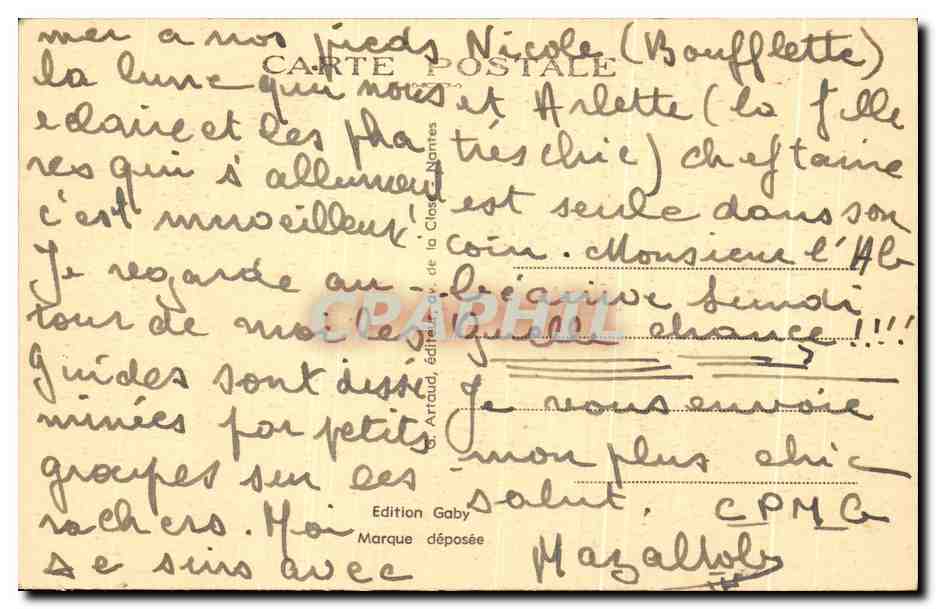 mer a nos pieds
la lune qui nous
eclaire et les pha
res qui s'allument
c'est mirveilleux!
Je regarde au-
tour de moi les
guides sont dissé
minées par petits
groupes sur les
rochers. Moi
Je suis avec
Nicole (Boufflette)
et Arlette (la fille
très chic) cheftaine
est seule dans son
coin. Monsieur l'Ab
bé arrive lundi
Quelle chance!!!!
Je vous envoie
mon plus chic
salut. CPMG
CARTE POSTALE
G. Artaud, éditeur, av. de la Close, Nantes
Edition Gaby
Marque déposée
CPAPHIL